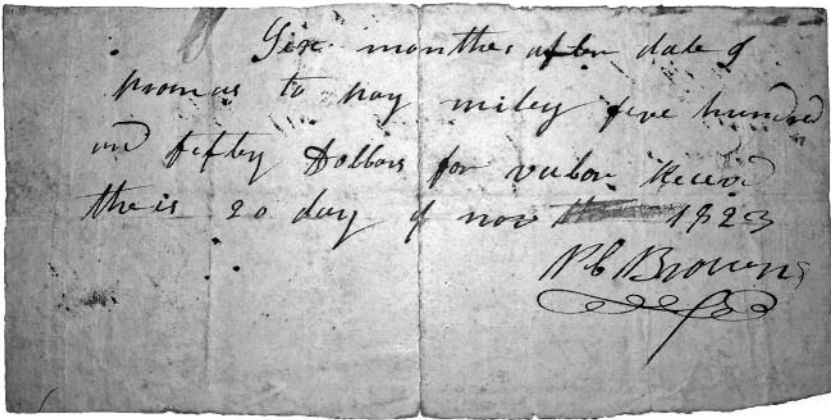 Six monthes after date I
promus to pay miley five hundred
and fifty Dollars for valor Receved
theis 20 day of nov 1823
P C Brown